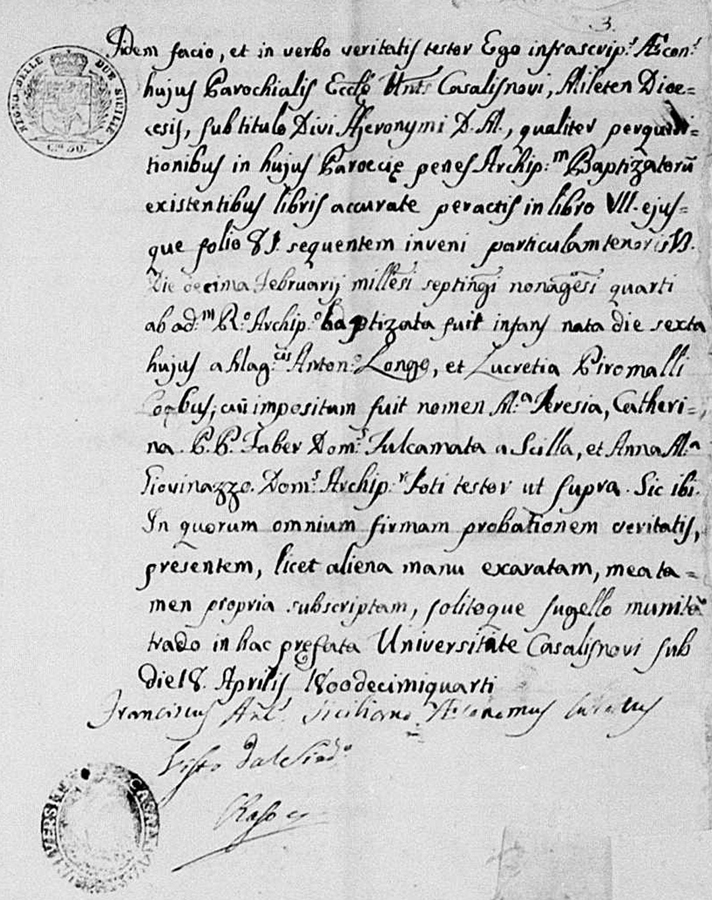 3.
REGNO DELLE DUE SICILIE
Fidem facio, et in verbo veritatis testor Ego infrascrip.s Æcon.s
hujus Parochialis Eccle Unts Casalisnovi, Mileten Dioe=
cesis, sub titulo Divi Hjeronymi D.M., qualiter perquisi-
tionibus in hujus Paroecię penes Archip.m Baptizatorū
existentibus libris accurate peractis in libro VII. ejus-
que folio 81. sequentem inveni particulam tenoris V.
Die decima Februarij millesi septingi nonagesi quarti
ab ad.m R.o Archip.o baptizata fuit infans nata die sexta
hujus a Mag.cis Anton.o Longo, et Lucretia Piromalli
cui impositum fuit nomen M.a Teresia, Catheri-
na. P.P. Faber Dom.s Fulcamata a Scilla, et Anna M.a
Giovinazzo. Dom.s Archip.r Poti testor ut supra. Sic ibi.
In quorum omnium firmam probationem veritatis,
presentem, licet aliena manu exaratam, mea ta=
men propria subscriptam, solitoque sugello munitā
trado in hac prefata Universitate Casalisnovi sub
die 18. Aprilis 1800decimiquarti
Franciscus Ant.s Siciliano Æconomus Curatus
Visto dal Sind.o
Raso